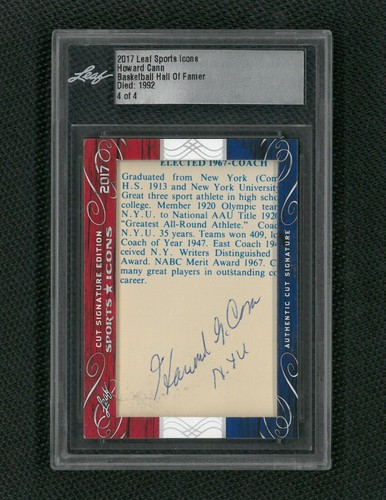 Leaf
2017 Leaf Sports Icons
Howard Cann
Basketball Hall Of Famer
Died: 1992
4 of 4
2017
CUT SIGNATURE EDITION
SPORTS ★ ICONS
Leaf
ELECTED 1967-COACH
Graduated from New York (Com
H.S. 1913 and New York University
Great three sport athlete in high scho
college. Member 1920 Olympic team
N.Y.U. to National AAU Title 1920
"Greatest All-Round Athlete." Coac
N.Y.U. 35 years. Teams won 409, lo
Coach of Year 1947. East Coach 194
ceived N.Y. Writers Distinguished
Award. NABC Merit Award 1967. C
many great players in outstanding co
career.
Howard G. Cann
N.Y.U
AUTHENTIC CUT SIGNATURE